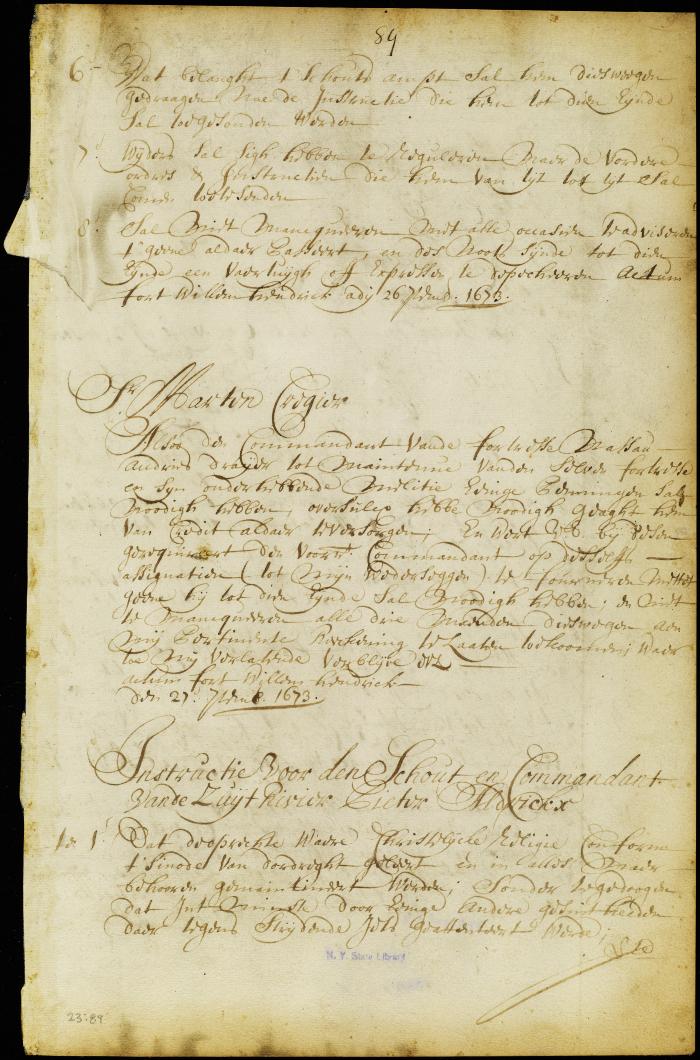 89
6 - Wat belanght t Schouts ampt Sal hem diesweegen
gedraagen Nae de Instructie die hem tot dien Eynde
Sal toegesonden Werden
7 Wyders Sal sigh hebben te Reguleren Naer de Vordere
ordres & Instructien die hem van tyt tot tyt Sal
Comen toetesenden
8 Sal Niet Manequeeren Met alle occasien te adviseren
t geene aldaer Passeert, en des Noots Synde tot dien
Eynde een Vaertuygh off Expresse te depecheeren Actum
fort Willem hendrick ady 26 7ber 1673.
Sr. Marten Cregier
Alsoo den Commandant Vande fortresse Nassau
Andries draeyer tot Maintenue Vanden Selven fortresse
en Syn onderhebbende Militie Eenige Penningen Sal
Noodigh hebben, oversulcx hebbe Noodigh geaght hem
Van Credit aldaer te versorgen; En Wert U.E. by desen
gerequireert den Voorn. Commandant op desselfs
assignatien (tot Myn Wederseggen) te fourneren Mettet
geene hy tot dien Eynde Sal Noodigh hebben; en Niet
te Manequeeren alle drie Maenden diesweegen aen
My Pertinente Reeckening te Laaten toekoomen; Waer
toe My Verlatende Verblyve etc
actum fort Willem hendrick
den 27 7ber. 1673.
Instructie Voor den Schout en Commandant
Vande Zuyt Rivier Pieter Aldrickx
1e 1 Dat de oprechte Waere Christelycke Religie Conform
t Sinode Van dordreght geleert en in alles Maer
behooren gemainteneert Werden; Sonder te gedoogen
dat Int Minste door Eenige Andere gesintheeden
daer tegens Strydende Jets geattenteert Werde;
N. Y. State Library
23:89